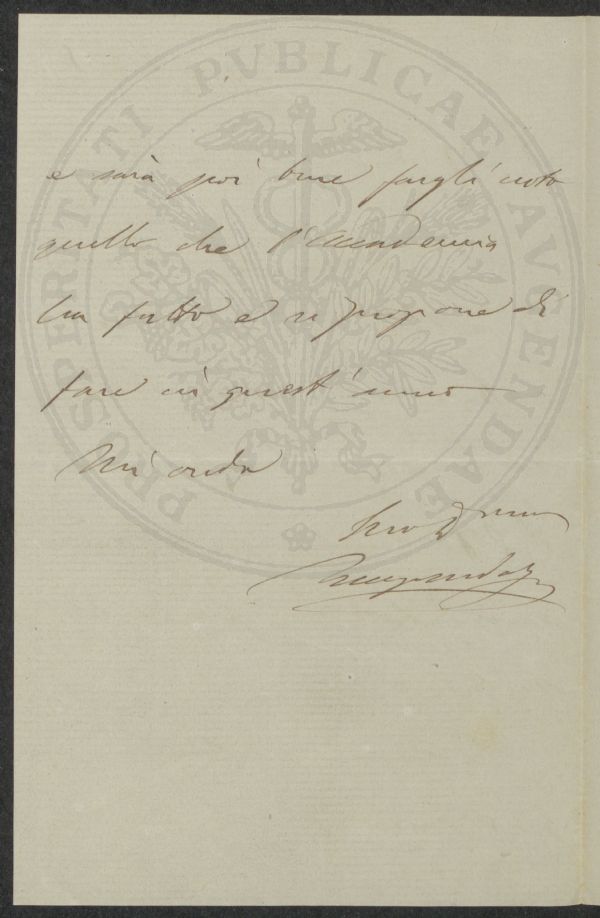 PROSPERITATI PVBLICAE AVGENDAE
e sarà poi bene fargli noto
quello che l'Accademia
ha fatto e si propone di
fare in quest'anno
Mi creda
Suo D